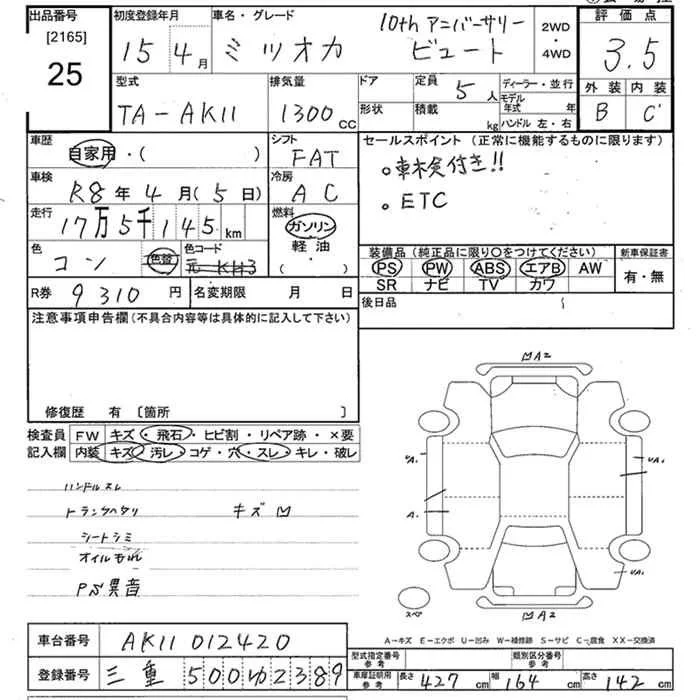 出品番号
[2165]
25
初度登録年月
15 4月
車名・グレード
ミツオカ
10th アニバーサリー
ビュート
2WD
・
4WD
評価点
3.5
外装 内装
B C'
型式
TA-AK11
排気量
1300cc
ドア
形状
定員
5人
積載
kg
ディーラー・並行
モデル年式 年
ハンドル 左・右
車歴
自家用・( )
シフト
FAT
セールスポイント (正常に機能するものに限ります)
○車検付き!!
○ETC
車検
R8年4月(5日)
冷房
AC
走行
17万5千145km
燃料
ガソリン
軽油
( ・ )
色
コン
色替
色コード
元 KH3
装備品 (純正品に限り○をつけてください)
PS PW ABS エアB AW
SR ナビ TV カワ
新車保証書
有・無
R券 9310円
名変期限 月 日
後日品
注意事項申告欄 (不具合内容等は具体的に記入して下さい)
修復歴 有 [箇所 ]
検査員
記入欄
FW キズ・飛石・ヒビ割・リペア跡・×要
内装 キズ・汚レ・コゲ・穴・スレ・キレ・破レ
ハンドルスレ
トランクヘタリ キズ凹
シートシミ
オイルもれ
PS異音
凹A2
UA.
A.
UA.
UA.
スペア
凹A2
A-キズ E-エクボ U-凹み W-補修跡 S-サビ C-腐食 XX-交換済
車台番号 AK11 012420
登録番号 三重500ゆ2389
型式指定番号
参考
類別区分番号
参考
車庫証明用
参考
長さ 427cm
幅 164cm
高さ 142cm